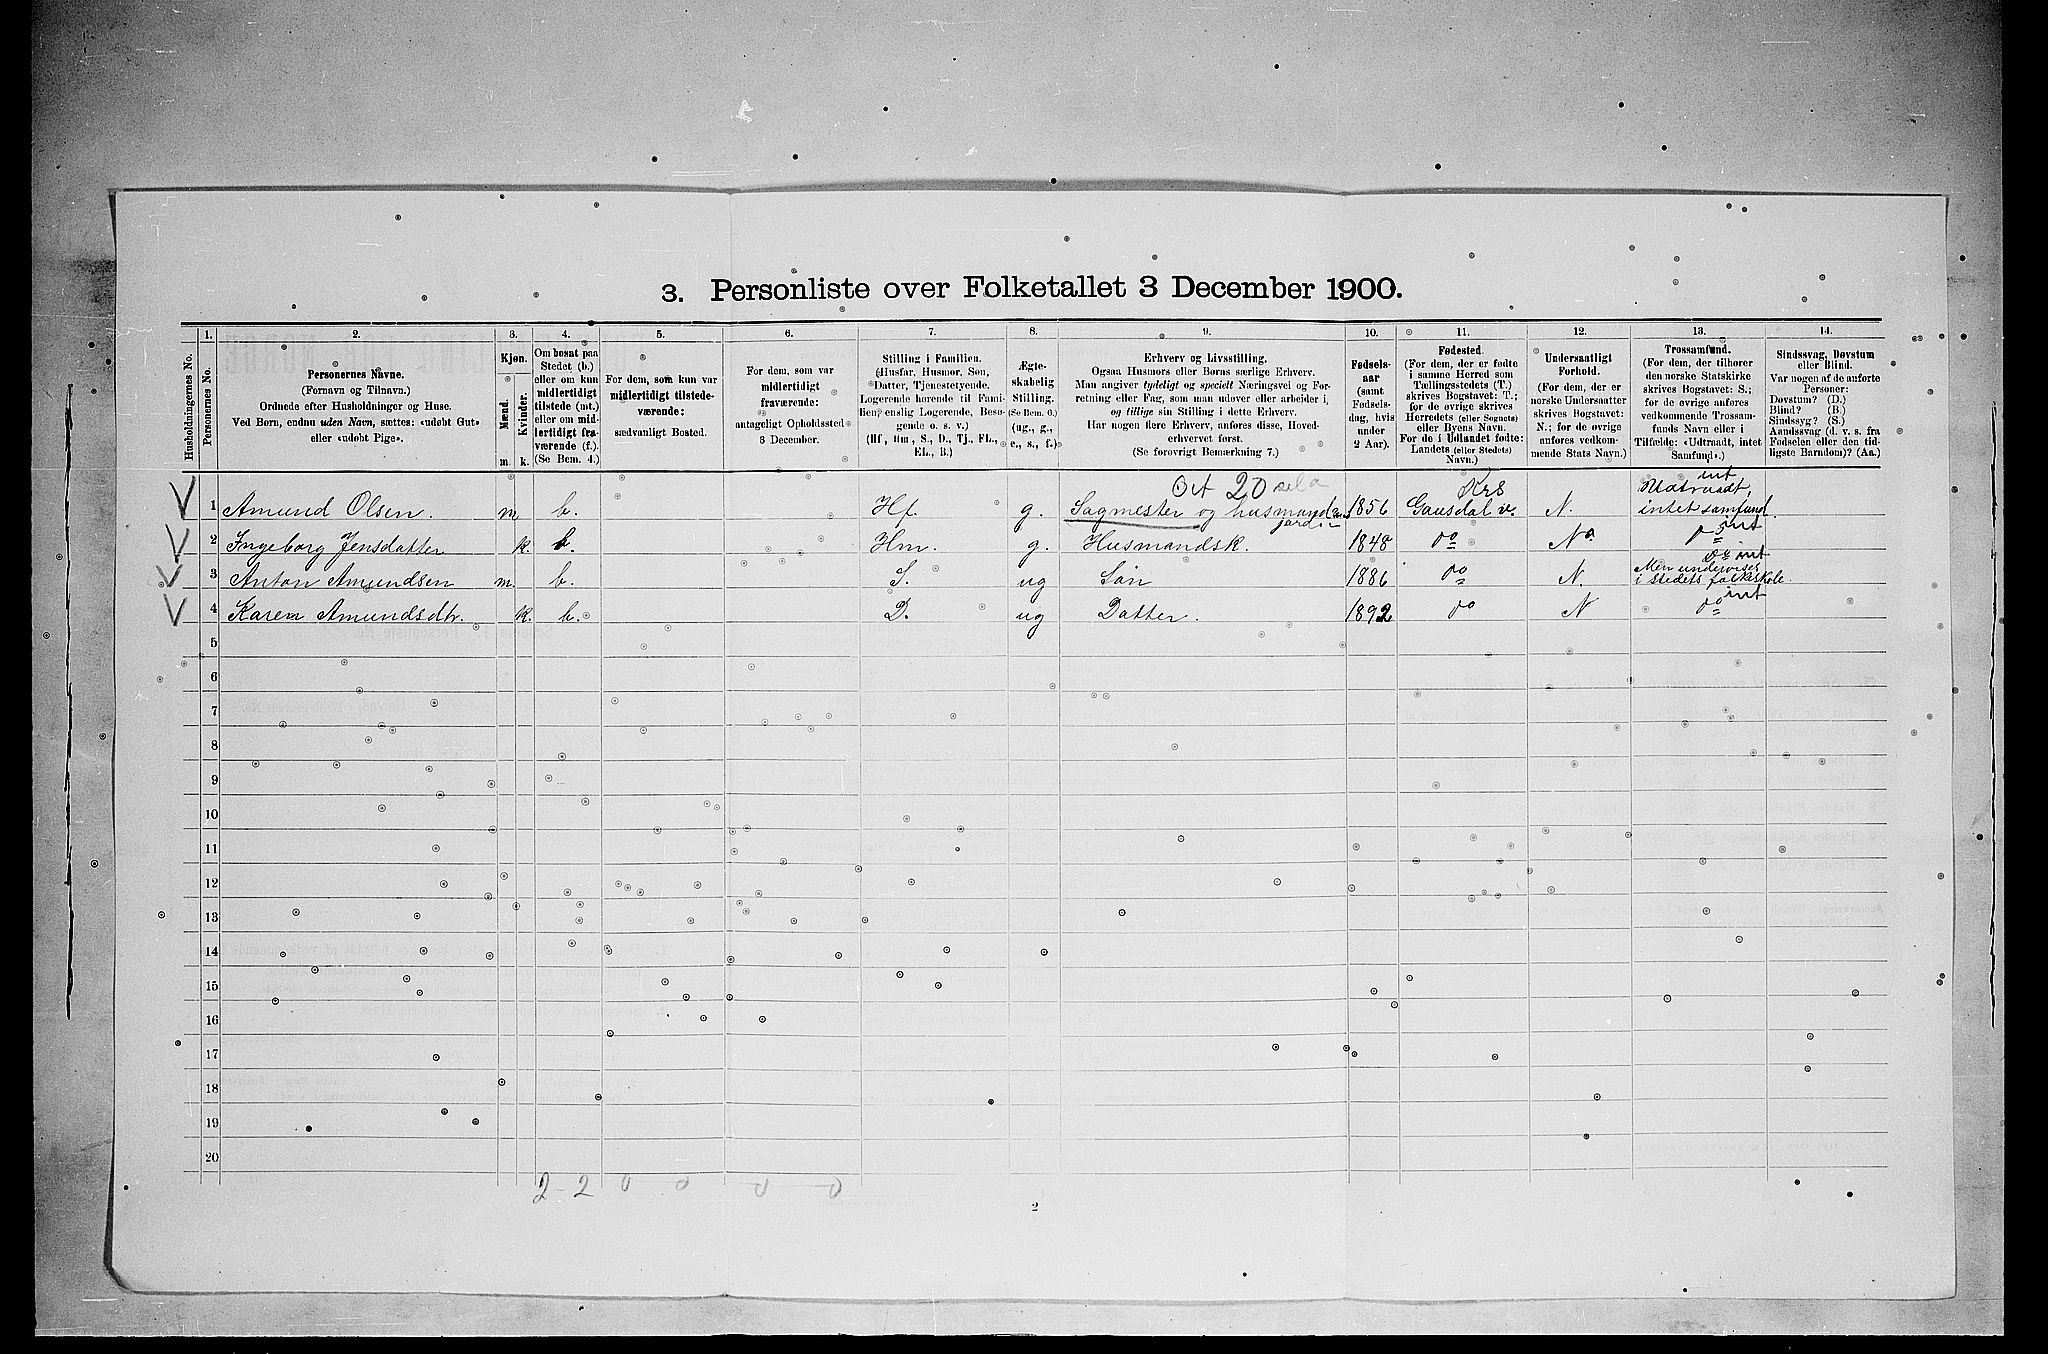 3. Personliste over Folketallet 3 December 1900.
1. 2. 3. 4. 5. 6. 7. 8. 9. 10. 11. 12. 13. 14.
Husholdningernes No.
Personernes No.
Personernes Navne.
(Fornavn og Tilnavn.)
Ordnede efter Husholdninger og Huse.
Ved Børn, endnu uden Navn, sættes: «udøbt Gut»
eller «udøbt Pige».
Kjøn.
Mænd.
Kvinder.
m. k.
Om bosat paa
Stedet (b.)
eller om kun
midlertidigt
tilstede (mt.)
eller om mid-
lertidigt fra-
værende (f.)
(Se Bem. 4.)
For dem, som kun var
midlertidigt tilstede-
værende:
sædvanligt Bosted.
For dem, som var
midlertidigt
fraværende:
antageligt Opholdssted
3 December.
Stilling i Familien.
(Husfar, Husmor, Søn,
Datter, Tjenestetyende,
Logerende hørende til Fami-
lien, enslig Logerende, Besø-
gende o. s. v.)
(Hf, Hm, S., D., Tj., FL.,
EL., B.)
Ægte-
skabelig
Stilling.
(Se Bem. 6.)
(ug., g.,
e., s., f.)
Erhverv og Livsstilling.
Ogsaa Husmors eller Børns særlige Erhverv.
Man angiver tydeligt og specielt Næringsvei og For-
retning eller Fag, som man udøver eller arbeider i,
og tillige sin Stilling i dette Erhverv.
Har nogen flere Erhverv, anføres disse, Hoved-
erhvervet først.
(Se forøvrigt Bemærkning 7.)
Fødsels-
aar
(samt
Fødsels-
dag, hvis
under
2 Aar).
Fødested.
(For dem, der er fødte
i samme Herred som
Tællingsstedets (T.)
skrives Bogstavet: T.;
for de øvrige skrives
Herredets (eller Sognets)
eller Byens Navn.
For de i Udlandet fødte:
Landets (eller Stedets)
Navn.)
Undersaatligt
Forhold.
(For dem, der er
norske Undersaatter
skrives Bogstavet:
N.; for de øvrige
anføres vedkom-
mende Stats Navn.)
Trossamfund.
(For dem, der tilhører
den norske Statskirke
skrives Bogstavet: S.;
for de øvrige anføres
vedkommende Trossam-
funds Navn eller i
Tilfælde: «Udtraadt, intet
Samfund».)
Sindssvag, Døvstum
eller Blind.
Var nogen af de anførte
Personer:
Døvstum? (D.)
Blind? (B.)
Sindssyg? (S.)
Aandssvag (d. v. s. fra
Fødselen eller den tid-
ligste Barndom)? (Aa.)
20 Krs int
1 Amund Olsen. m b. Hf. g. Sagmester og husmand 1856 Gausdal v. N. Udtraadt,
intet samfund.
jord
2 Ingeborg Jensdatter k. b. Hm. g. Husmandsk. 1848 do N. do int
3 Anton Amundsen m. b. S. ug Søn 1886 do N. do int
Men underviser
i stedets folkskole
4 Karen Amundsdtr. k. b. D. ug Datter. 1892 do N do int
5
6
7
8
9
10
11
12
13
14
15
16
17
18
19
20
2 - 2 0 0 0 - 0
2